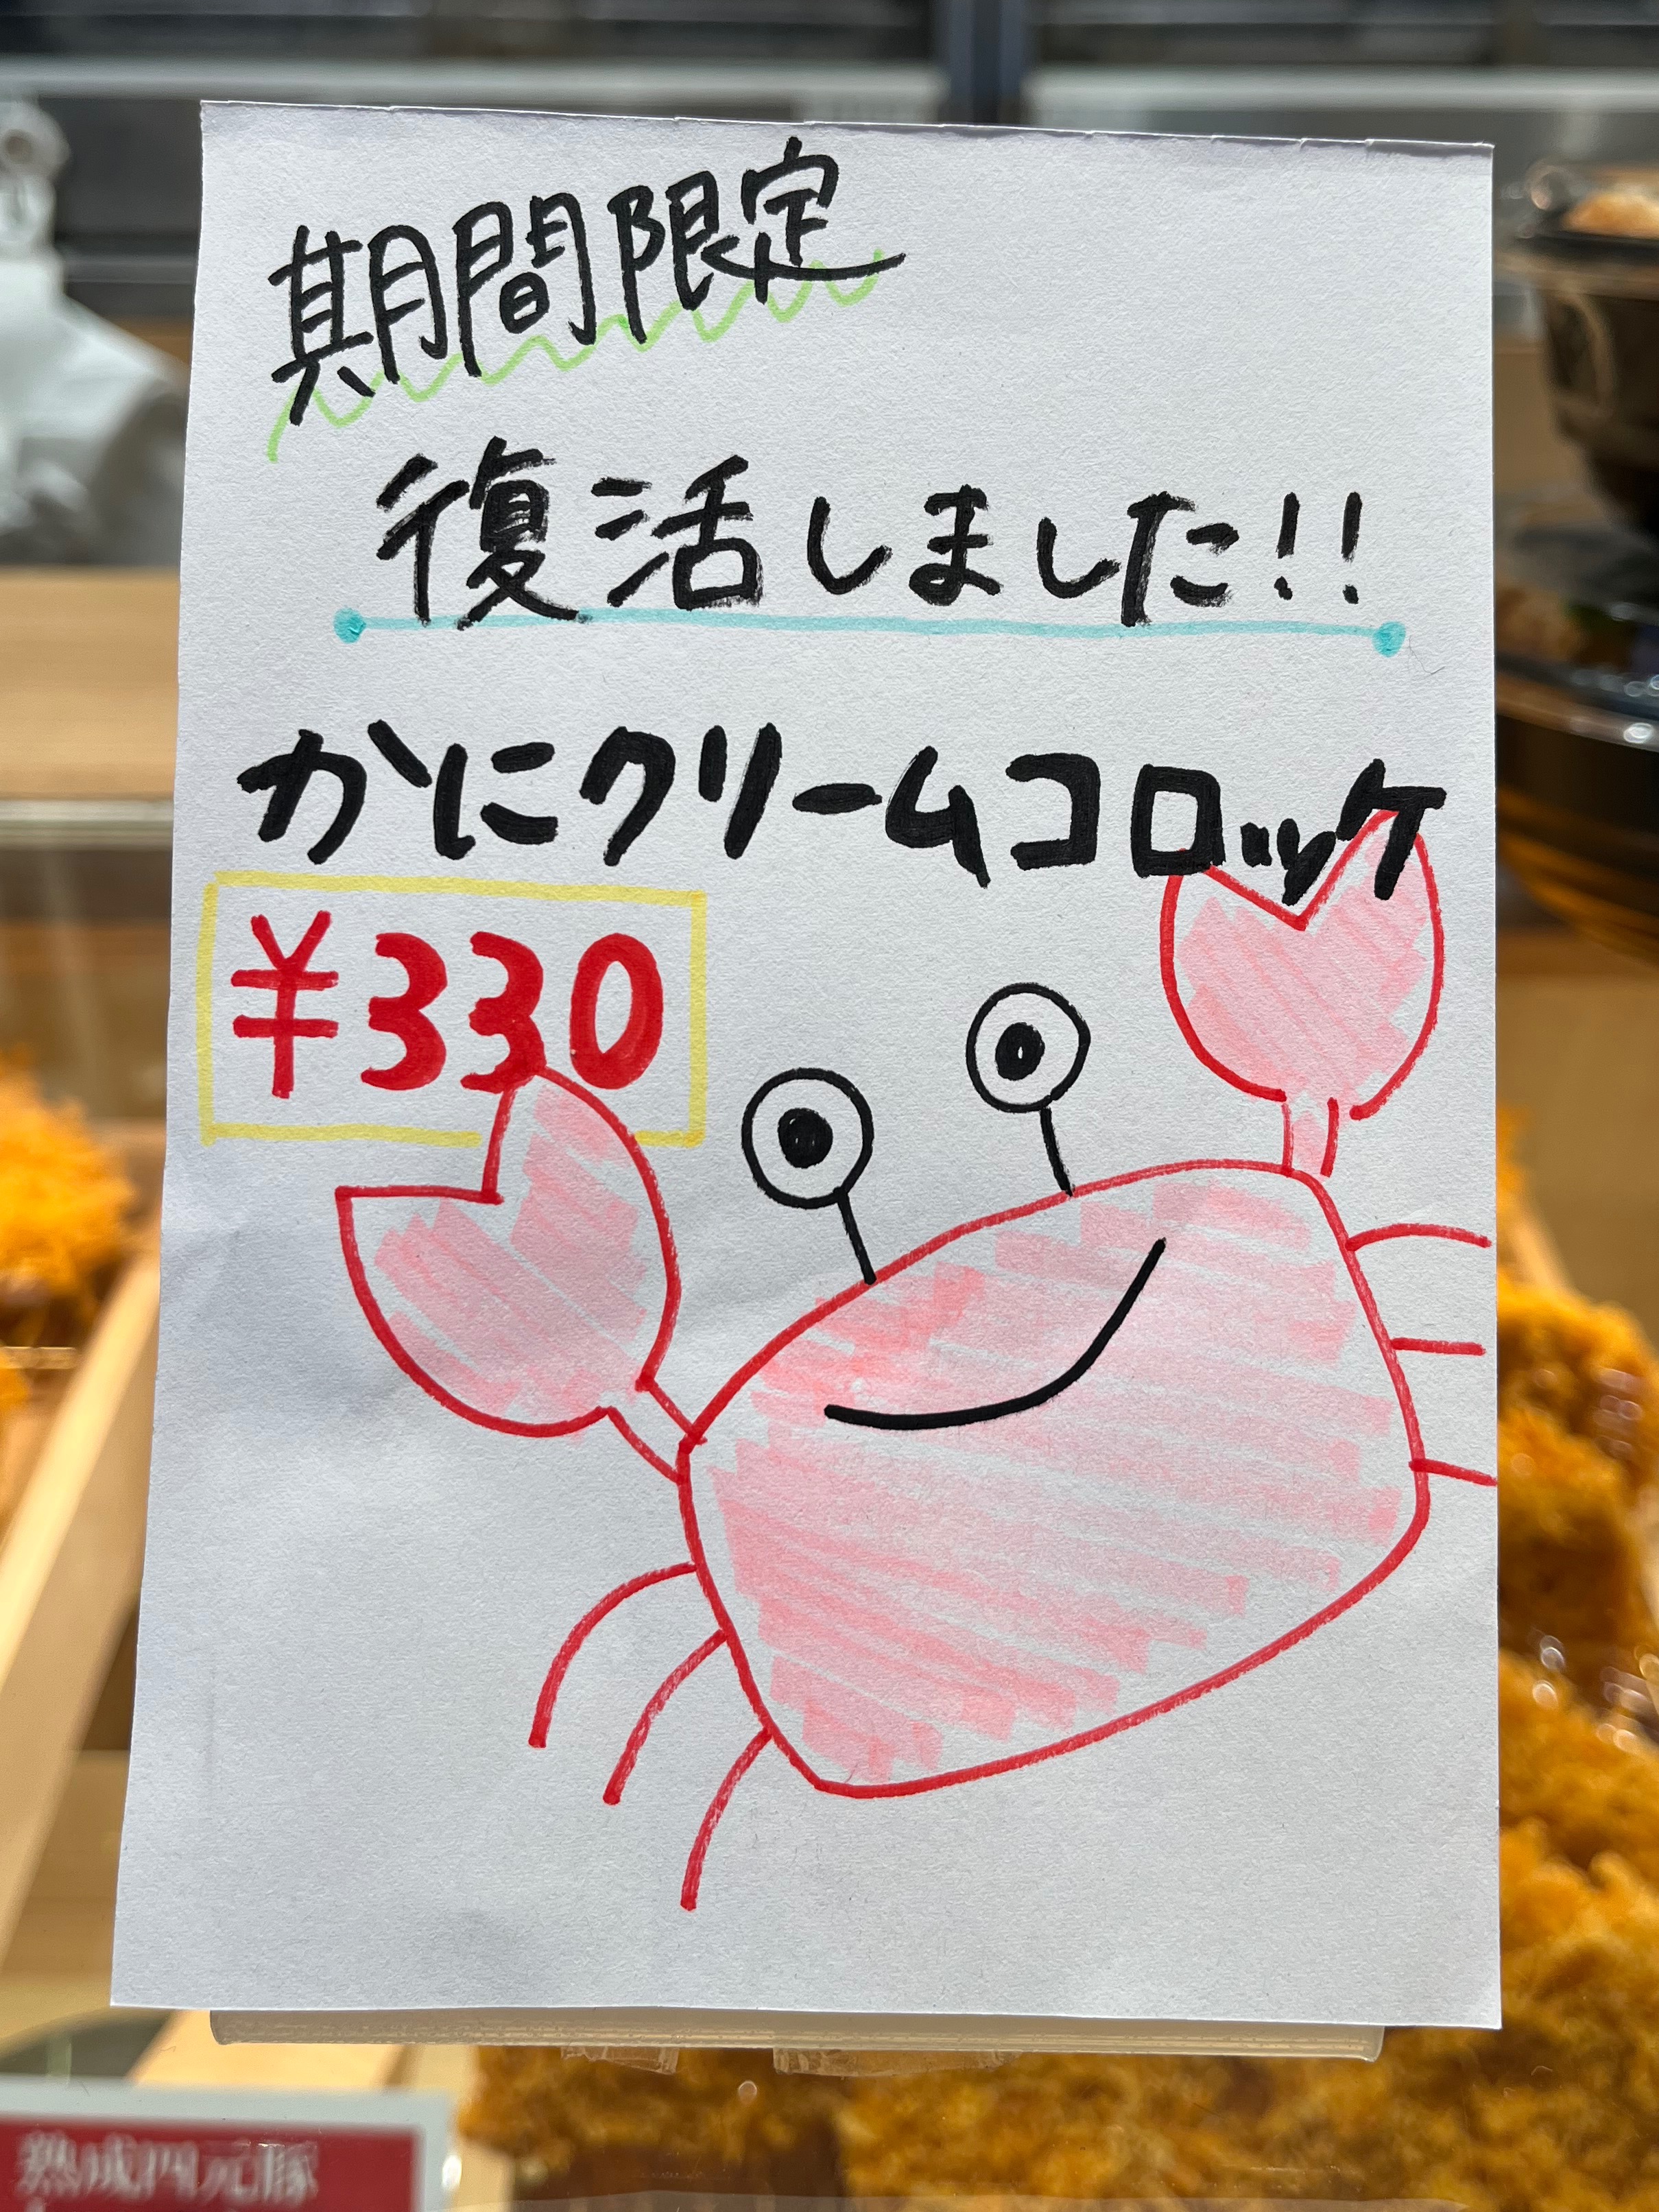 期間限定
復活しました!!
かにクリームコロッケ
¥330
熟成四元豚